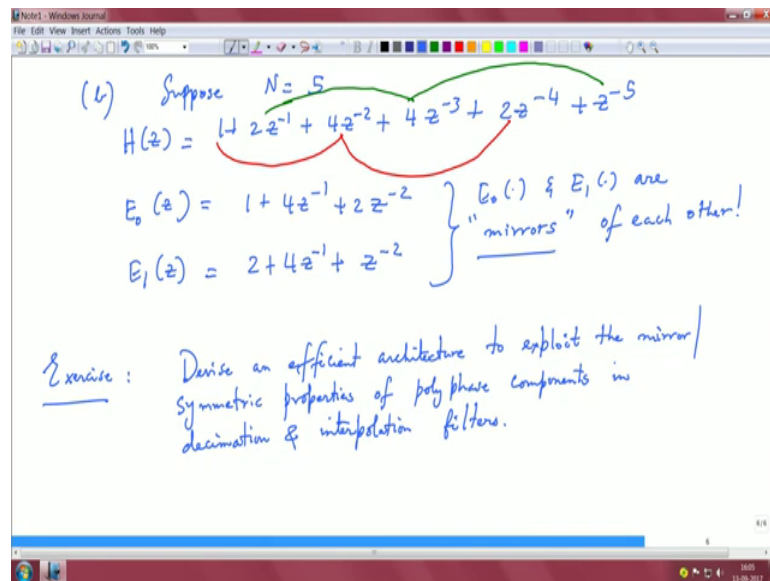 Note1 - Windows Journal
File Edit View Insert Actions Tools Help
100%
(b) Suppose N = 5
H(z) = 1 + 2z⁻¹ + 4z⁻² + 4z⁻³ + 2z⁻⁴ + z⁻⁵
E₀(z) = 1 + 4z⁻¹ + 2z⁻² } E₀(·) & E₁(·) are
"mirrors" of each other!
E₁(z) = 2 + 4z⁻¹ + z⁻²
Exercise : Devise an efficient architecture to exploit the mirror/
symmetric properties of polyphase components in
decimation & interpolation filters.
6/6
6
16:05
13-09-2017